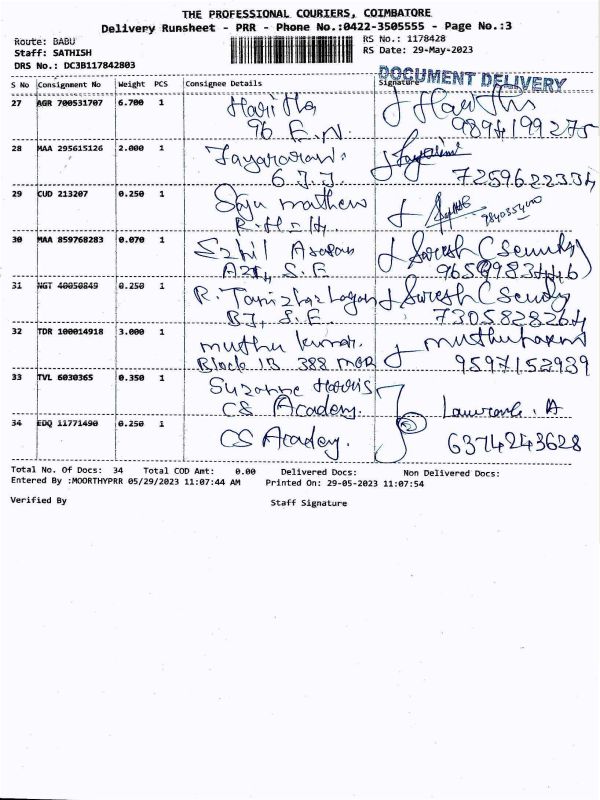 THE PROFESSIONAL COURIERS, COIMBATORE
Delivery Runsheet - PRR - Phone No.:0422-3505555 - Page No.:3
Route: BABU
RS No.: 1178428
Staff: SATHISH
RS Date: 29-May-2023
DRS No.: DC3B117842803
DOCUMENT DELIVERY
S No Consignment No Weight PCS Consignee Details Signature
27 AGR 700531707 6.700 1 Haritha
96 E.N. 9894199275
28 MAA 295615126 2.000 1 Jayararan.
6 J.J. 7259622334
29 CUD 213207 0.250 1 Saju mathew
9840554400
30 MAA 859768283 0.070 1 Ezhil Arasan Suresh (Security)
S.E
31 NGT 40050849 0.250 1 R. Tamizhazhagan Suresh (Security)
B7, S.E 7305828264
32 TDR 100014918 3.000 1 muthu kumar. muthukumar
Block 1B 388 9597152939
33 TVL 6030365 0.350 1 Suzanne Harris
CS Academy. Lawrance. A
34 EDQ 11771490 0.250 1 CS Academy. 6374243628
Total No. Of Docs: 34 Total COD Amt: 0.00 Delivered Docs: Non Delivered Docs:
Entered By :MOORTHYPRR 05/29/2023 11:07:44 AM Printed On: 29-05-2023 11:07:54
Verified By Staff Signature